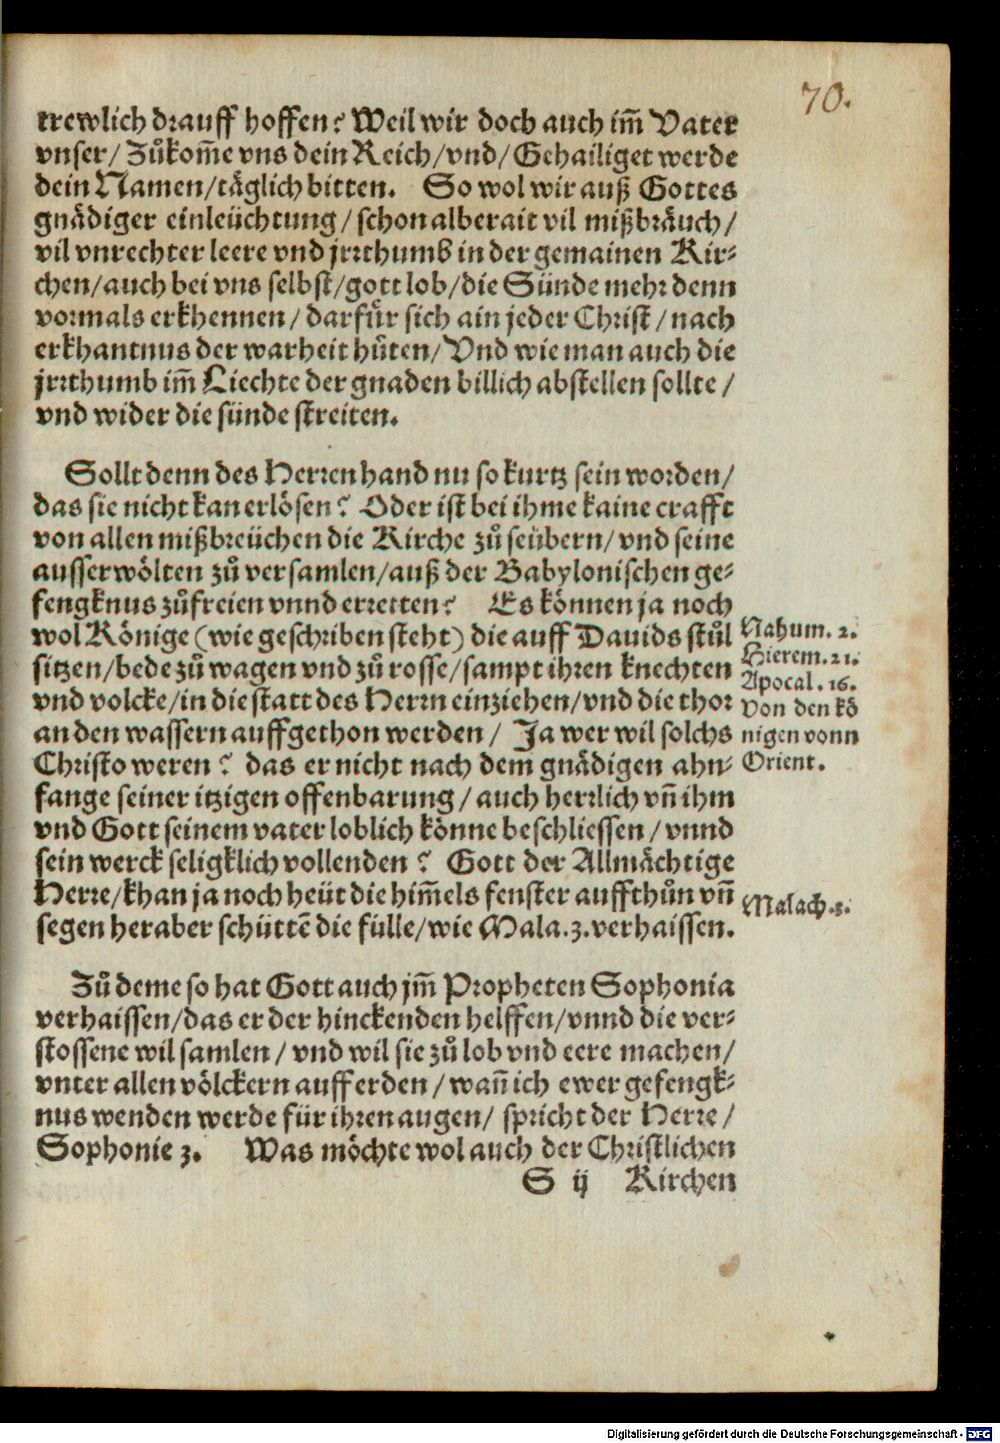 70.
trewlich drauff hoffen? Weil wir doch auch im̃ Vater
vnser/ Zůkom̃e vns dein Reich/vnd/ Gehailiget werde
dein Namen/täglich bitten. So wol wir auß Gottes
gnädiger einleüchtung/ schon alberait vil mißbräuch/
vil vnrechter leere vnd jrrthumb in der gemainen Kir-
chen/auch bei vns selbst/gott lob/die Sünde mehr denn
vormals erkhennen/ darfür sich ain jeder Christ/ nach
erkhantnus der warheit hůten/ Vnd wie man auch die
jrrthumb im̃ Liechte der gnaden billich abstellen sollte/
vnd wider die sünde streiten.
Sollt denn des Herren hand nu so kurtz sein worden/
das sie nicht kan erlösen? Oder ist bei ihme kaine crafft
von allen mißbreüchen die Kirche zů seübern/ vnd seine
ausserwölten zů versamlen/auß der Babylonischen ge-
fengknus zůfreien vnnd erretten? Es können ja noch
wol Könige (wie geschriben steht) die auff Dauids stůl
sitzen/bede zů wagen vnd zů rosse/sampt ihren knechten
vnd volcke/in die statt des Herrn einziehen/vnd die thor
an den wassern auffgethon werden/ Ja wer wil solchs
Christo weren? das er nicht nach dem gnädigen ahn-
fange seiner itzigen offenbarung/ auch herrlich vñ ihm
vnd Gott seinem vater loblich könne beschliessen/ vnnd
sein werck seligklich vollenden? Gott der Allmächtige
Herre/khan ja noch heüt die him̃els fenster auffthůn vñ
segen heraber schüttẽ die fülle/wie Mala.3.verhaissen.
Nahum. 2.
Hierem. 21.
Apocal. 16.
von den kö
nigen vonn
Orient.
Malach.3.
Zů deme so hat Gott auch jm̃ Propheten Sophonia
verhaissen/das er der hinckenden helffen/vnnd die ver-
stossene wil samlen/ vnd wil sie zů lob vnd eere machen/
vnter allen völckern auff erden/ wañ ich ewer gefengk-
nus wenden werde für ihren augen/ spricht der Herre/
Sophonie 3. Was möchte wol auch der Christlichen
S ij Kirchen
Digitalisierung gefördert durch die Deutsche Forschungsgemeinschaft - DFG